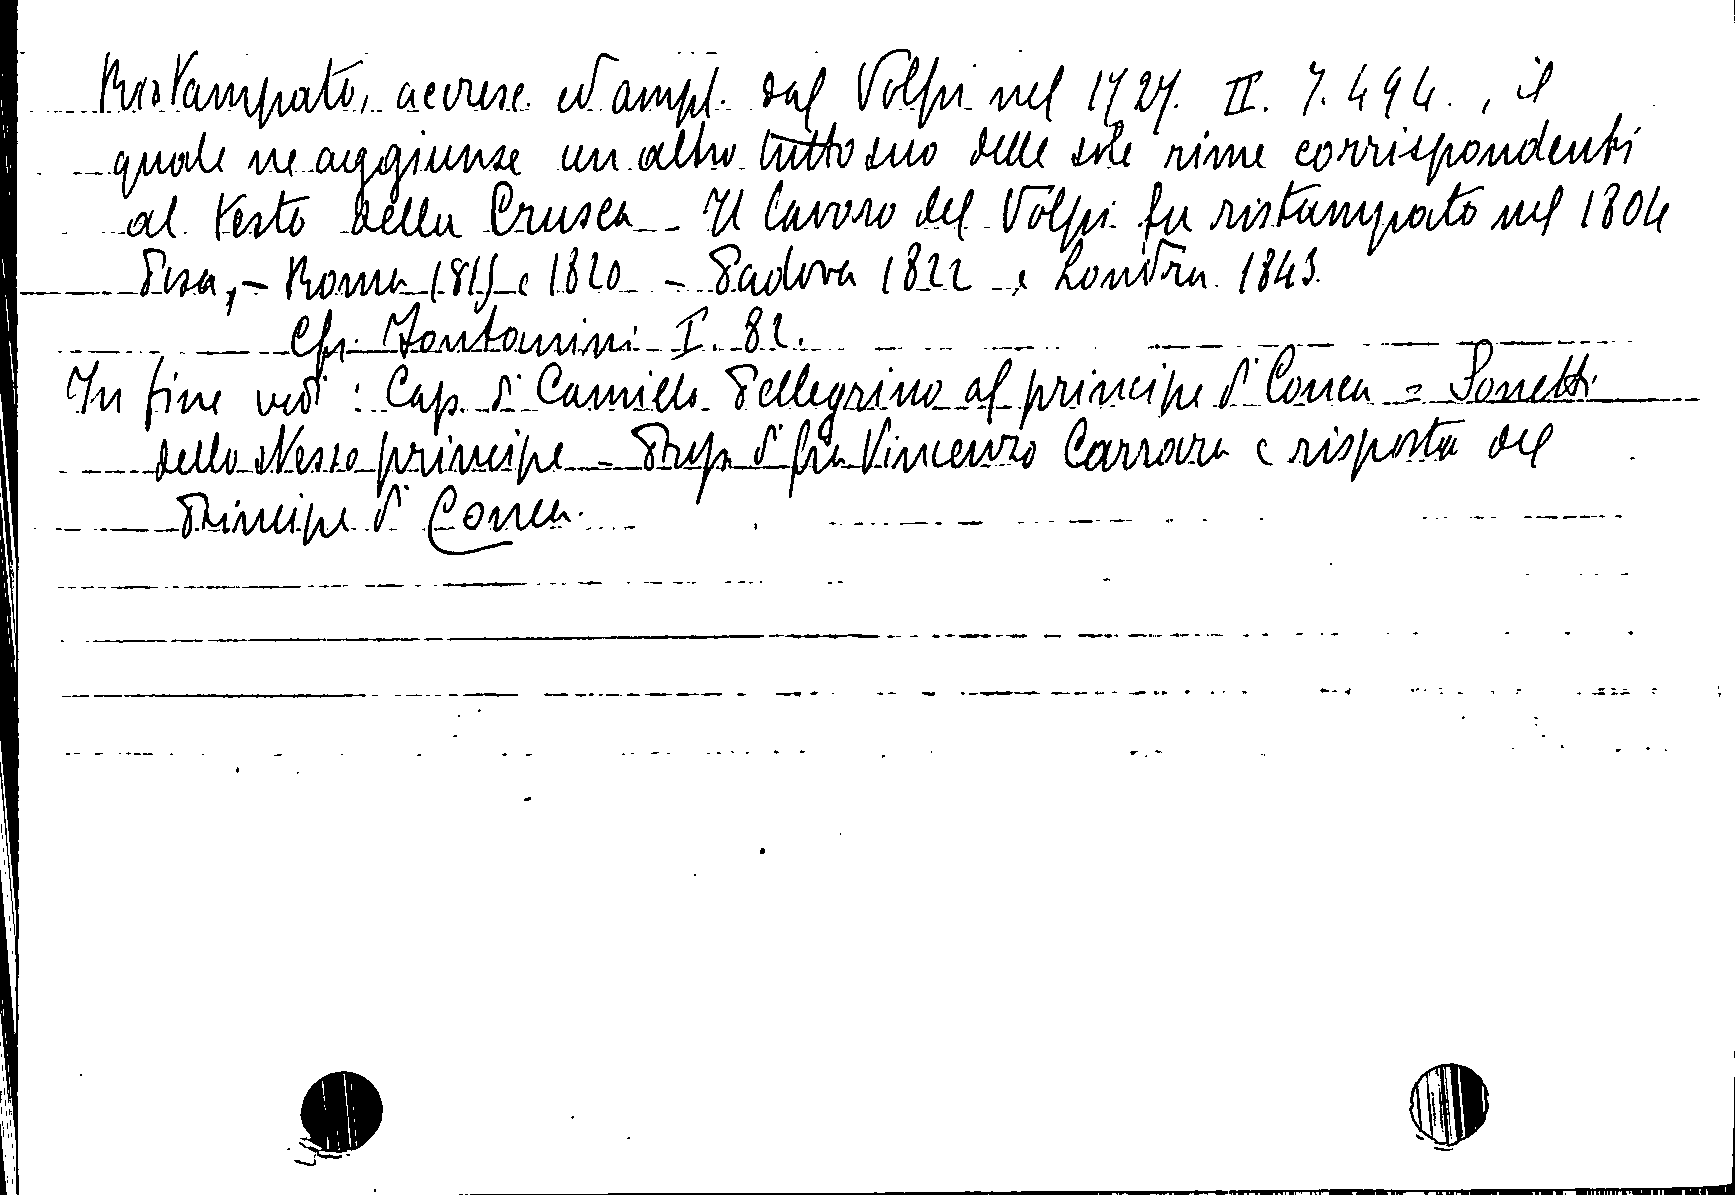 Ristampato, accresc. ed ampl. dal Volpi nel 1727. II. 7. 494. , il
quale ne aggiunse un altro tutto suo delle sole rime corrispondenti
al testo della Crusca - Il lavoro del Volpi fu ristampato nel 1804
Pisa, - Roma 1815 e 1820 - Padova 1822 e Londra 1843.
Cfr. Fontanini I. 82.
In fine vedi : Cap. di Camillo Pellegrino al principe di Conca = Sonetti
dello stesso principe - di fra Vincenzo Carrara e risposta del
Principe di Conca.